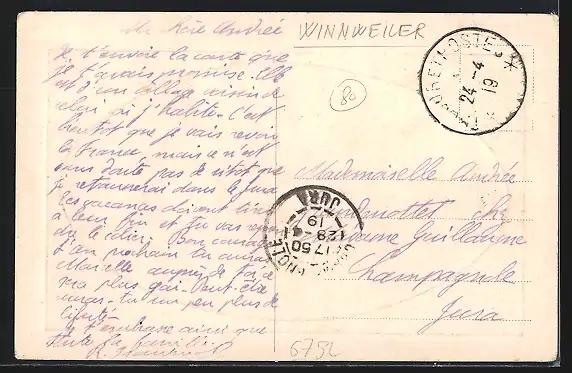 WINNWEILER
Ma Chère Andrée
Je t'envoie la carte que
je t'avais promise. Elle
est d'un village voisin de
celui où j'habite. C'est
bientôt que je vais revoir
la France, mais ce n'est
sans doute pas de sitôt que
je retournerai dans le Jura
Les vacances doivent tirer
à leur fin et tu vas
Bon courage
l'an prochain tu auras
Marcelle auprès de toi, ce
sera plus gai. Peut-être
auras-tu un peu plus de
liberté.
J'embrasse ainsi que
toute la famille.
80
TRÉSOR ET POSTES
24-4
19
Mademoiselle Andrée
chez
Guillaume
Champagnole
Jura
CHAMPAGNOLE
17 50
29-4
19
JURA
6752